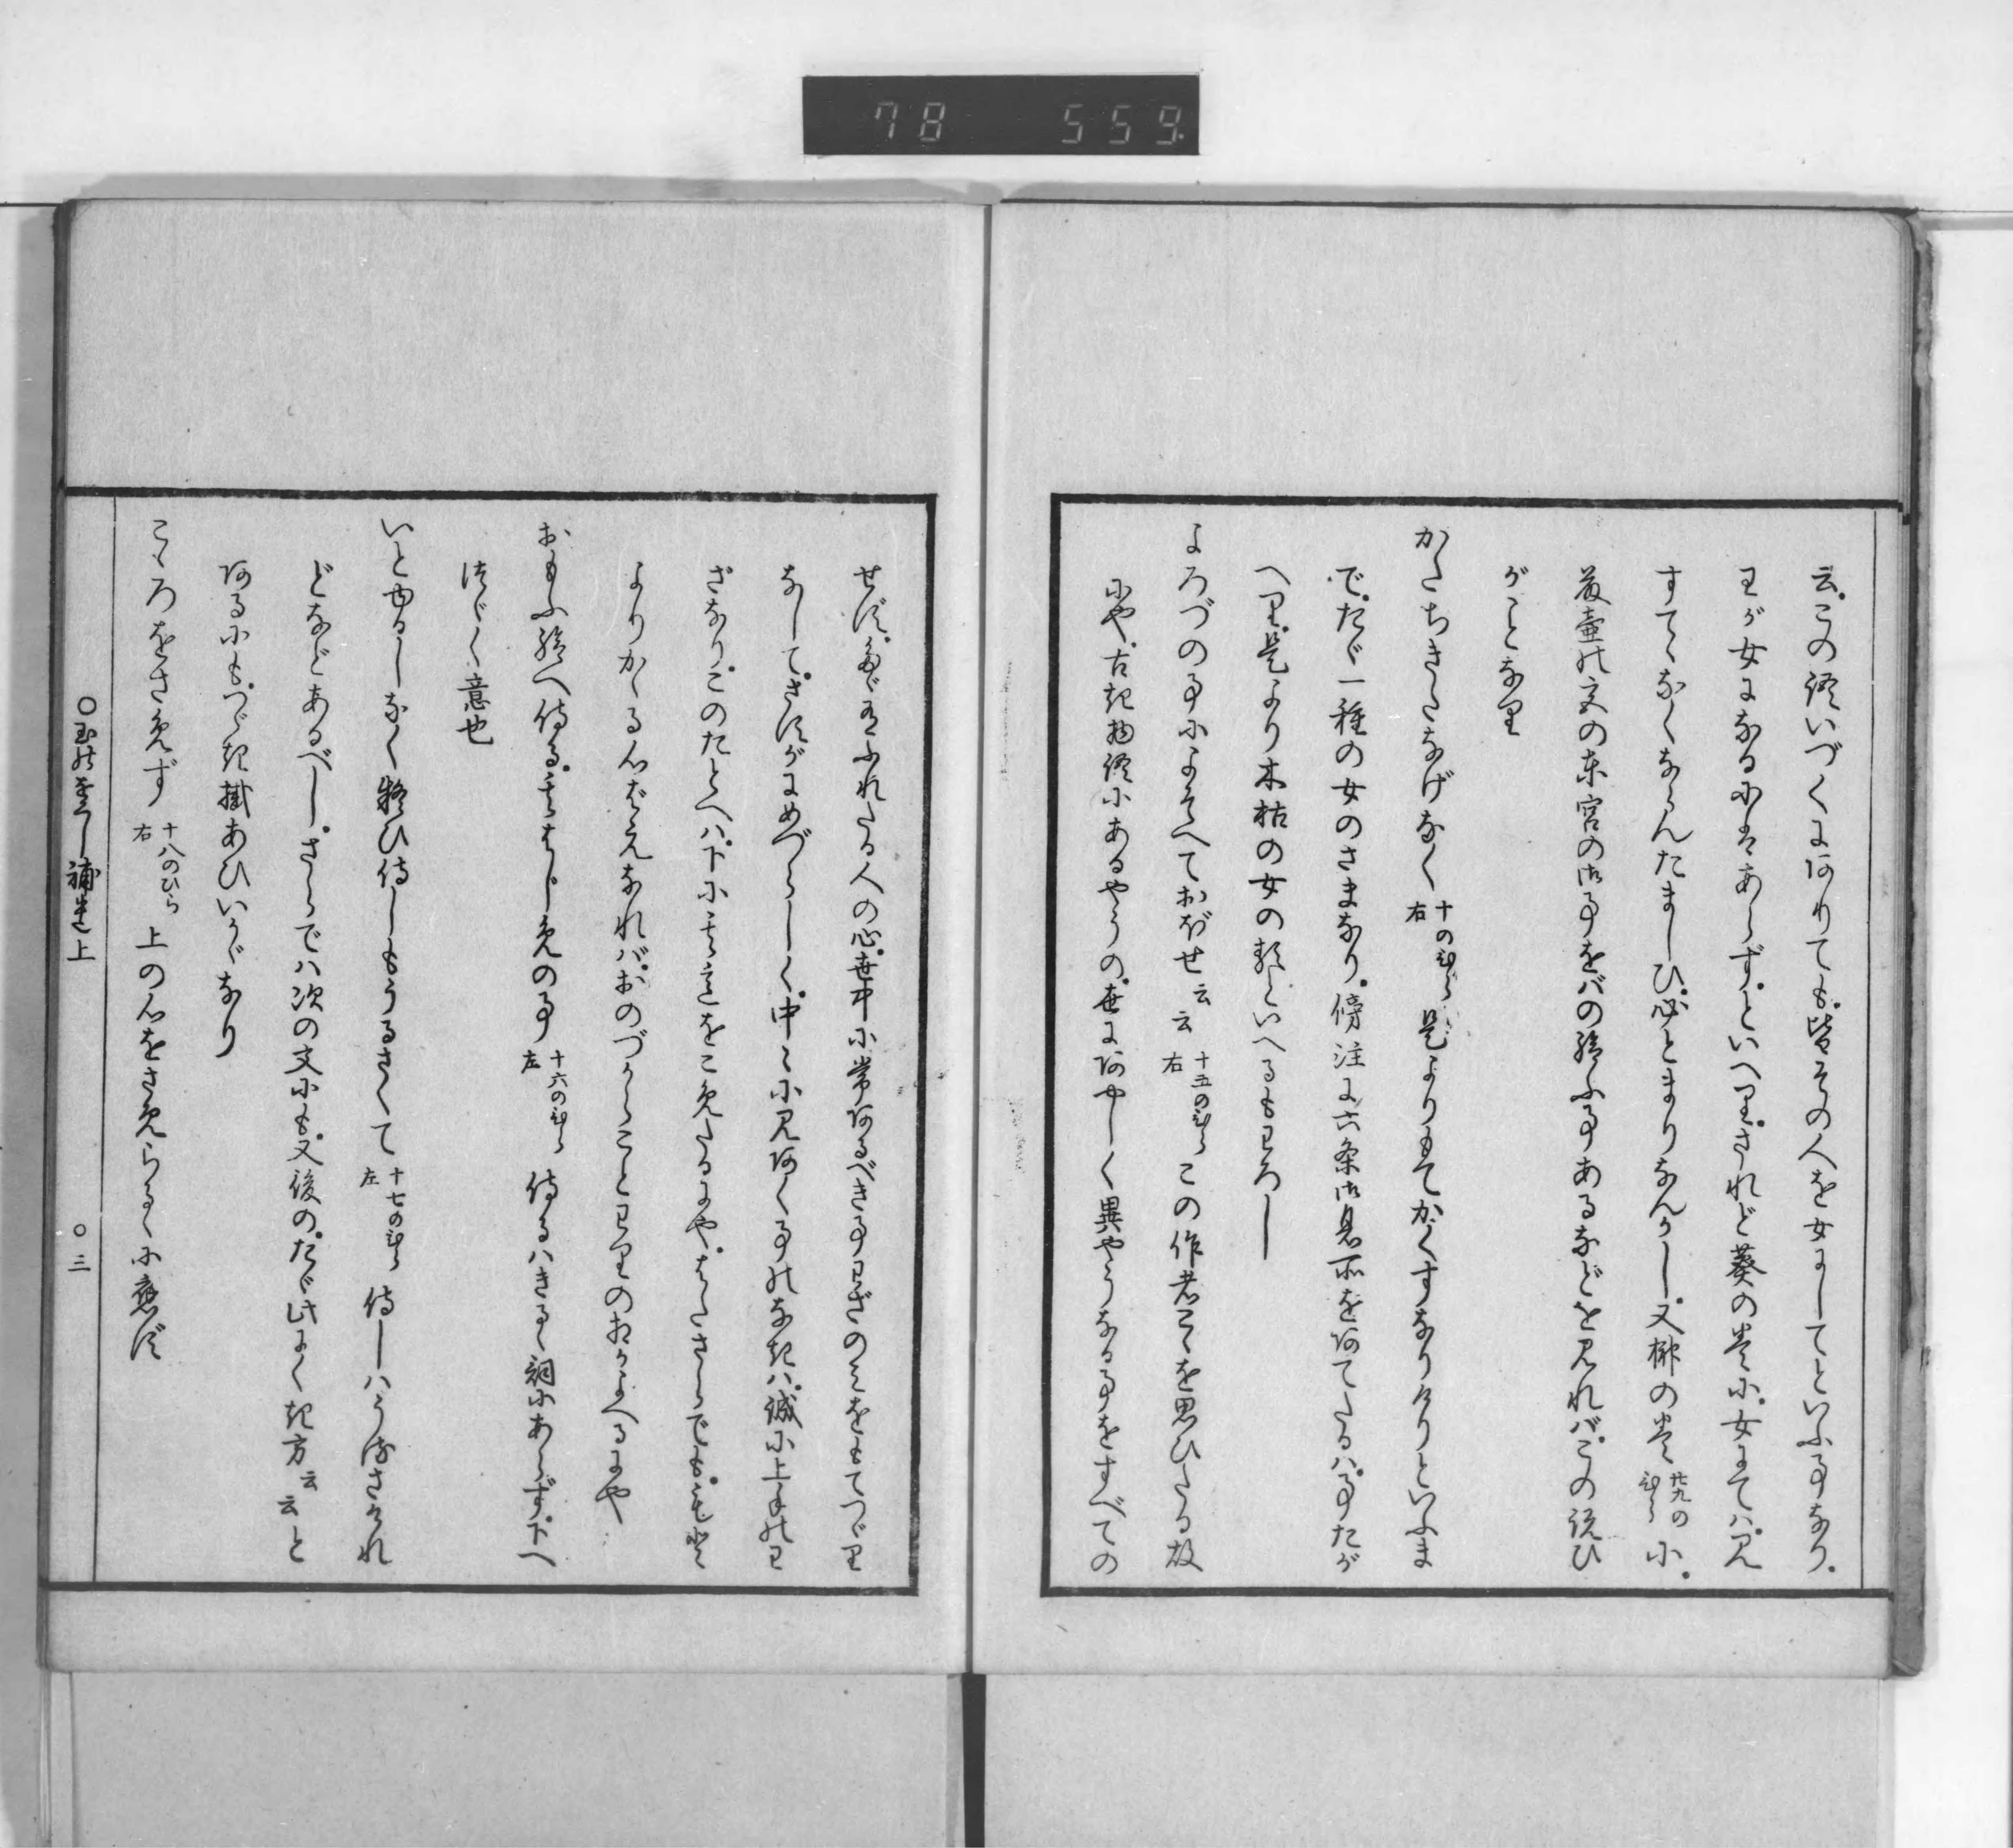 78 559
云この詞いづくにありても皆その人を女にしてといふ事なり
わが女になるにはあらずといへりされど葵の巻に女にてハ見ん
すてゝなくならんたましひ必とまりなんかし又榊の巻 廿九のひら に
藤壺の文の東宮の御事をバの給ふ事あるなどを見れバこの説ひ
がことなり
かたちきたなげなく 十のひら右 是よりもてかくすなりけりといふま
でたゞ一種の女のさまなり傍注に六条御息所をあてたるハ事たが
へり是より木枯の女の類といへるもわろし
よろづの事によそへておぼせ云云 十五のひら右 この作者こゝを思ひたる故
にや古き物語にあるやうの世にあやしく異やうなる事をすべての
せずたゞ有ふれたる人の心世中に常あるべき事わざのミをもてつゞり
なしてさすがにめづらしく中々に見あく事のなきハ誠に上手のわ
ざなりこのたとへハ下に其意をこめたるにやはたさらでも
よりかゝる心ばえなれバおのづからことわりのおかよへるにや
おもふ給へ侍る其はじめの事 十六のひら左 侍るハきるゝ詞にあらず下へ
つゞく意也
いとゆるしなく疑ひ侍しもうるさくて 十七のひら左 侍しハうるさけれ
どなどあるべしさらでハ次の文にも又後のたゞ此にくき方云云と
あるにもつゞき掛あひいかゞなり
こゝろをさめず 十八のひら右 上の心をさめらるゝに應ず
○玉のをぐし補遺上 ○三